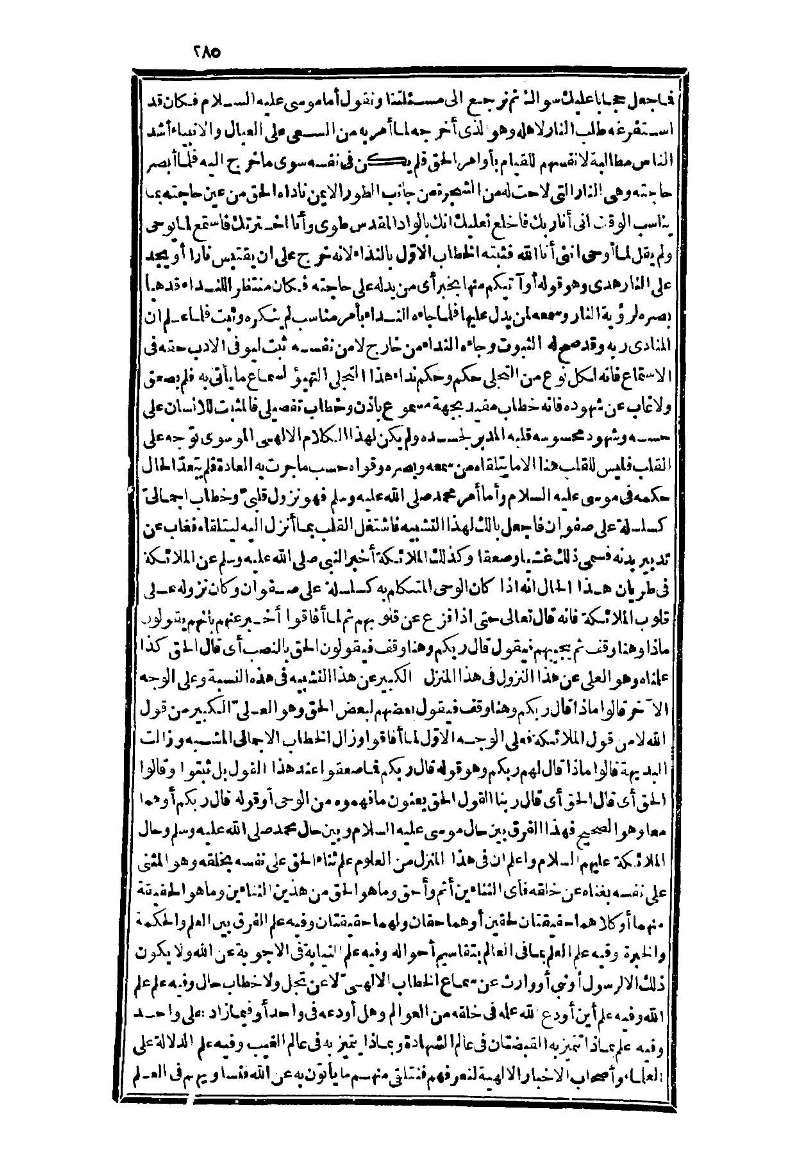 ٢٨٥
فاجعل حجابا عليك سوالك ثم نرجع الى مسئلتنا ونقول أما موسى عليه السلام فكان قد
استفرغه طلب النار لاهله وهو الذى أخرجه لما أمر به من السعى على العيال والانبياء أشد
الناس مطالبة لانفسهم للقيام بأوامر الحق فلم يكن فى نفسه سوى ما خرج اليه فلما أبصر
حاجته وهى النار التى لاحت له من الشجرة من جانب الطور الايمن ناداه الحق من عين حاجته بما
يناسب الوقت انى أنا ربك فاخلع نعليك انك بالواد المقدس طوى وأنا اخترتك فاستمع لما يوحى
ولم يقل لما أوحى اننى أنا الله فثبته الخطاب الاول بالنداء لانه خرج على ان يقتبس نارا أو يجد
على النار هدى وهو قوله أو آتيكم منها بخبر أى من يدله على حاجته فكان منتظر اللنداء قد هيأ
بصره لرؤية النار وسمعه لمن يدل عليها فلما جاءه النداء بأمر مناسب لم ينكره وثبت فلما علم ان
المنادى ربه وقد صح له الثبوت وجاءه النداء من خارج لا من نفسه ثبت ليوفى الادب حقه فى
الاستماع فانه لكل نوع من التجلى حكم وحكم نداء هذا التجلى التهيؤ لسماع ما يأتى به فلم يصعق
ولا غاب عن شهوده فانه خطاب مقيد بجهة مسموع باذن وخطاب تفصيلى فالمثبت للانسان على
حسه وشهود محسوسه قلبه المدبر لجسده ولم يكن لهذا الكلام الالهى الموسوى توجه على
القلب فليس للقلب هنا الا ما يتلقاه من سمعه وبصره وقواه حسب ما جرت به العادة فلم يتعد الحال
حكمه فى موسى عليه السلام وأما أمر محمد صلى الله عليه وسلم فهو نزول قلبى وخطاب اجمالى
كسلسلة على صفوان فاجعل بالك لهذا التشبيه فاشتغل القلب بما أنزل اليه ليتلقاه فغاب عن
تدبير بدنه فسمى ذلك غشيا وصعقا وكذلك الملائكة أخبر النبى صلى الله عليه وسلم عن الملائكة
فى طريان هذا الحال انه اذا كان الوحى المتكلم به كسلسلة على صفوان وكان نزوله على
قلوب الملائكة فانه قال تعالى حتى اذا فزع عن قلوبهم ثم لما أفاقوا أخبر عنهم بأنهم يقولون
ماذا وهنا وقف ثم يجيبهم فيقول قال ربكم وهنا وقف فيقولون الحق بالنصب أى قال الحق كذا
علمناه وهو العلى عن هذا النزول فى هذا المنزل الكبير عن هذا التشبيه فى هذه النسبة وعلى الوجه
الآخر قالوا ماذا قال ربكم وهنا وقف فيقول بعضهم لبعض الحق وهو العلى الكبير من قول
الله لا من قول الملائكة فعلى الوجه الاول لما أفاقوا وزال الخطاب الاجمالى المشبه وزالت
البديهة قالوا ماذا قال لهم ربكم وهو قوله قال ربكم فما صعقوا عند هذا القول بل ثبتوا وقالوا
الحق أى قال الحق أى قال ربنا القول الحق يعنون ما فهموه من الوحى أو قوله قال ربكم أو هما
معا وهو الصحيح فهذا الفرق بين حال موسى عليه السلام وبين حال محمد صلى الله عليه وسلم وحال
الملائكة عليهم السلام واعلم ان فى هذا المنزل من العلوم علم ثناء الحق على نفسه بخلقه وهو المثنى
على نفسه بغناه عن خلقه فأى الثناءين أتم وأحق وما هو الحق من هذين الثناءين وما هو الحقيقة
منهما أو كلاهما حقيقتان لحقين أو هما حقان ولهما حقيقتان وفيه علم الفرق بين العلم والحكمة
والخبرة وفيه علم العلم بما فى العالم بتقاسيم أحواله وفيه علم النيابة فى الاجوبة عن الله ولا يكون
ذلك الا لرسول أو نبى أو وارث عن سماع الخطاب الالهى لا عن تجل ولا خطاب حال وفيه علم علم
الله وفيه علم أين أودع الله علمه فى خلقه من العوالم وهل أودعه فى واحد أو فيما زاد على واحد
وفيه علم بماذا تتميز به القبضتان فى عالم الشهادة وبماذا يتميز به فى عالم الغيب وفيه علم الدلالة على
العلماء وأصحاب الاخبار الالهية لنعرفهم فنتلقى منهم ما يأتون به عن الله فنساويهم فى العلم